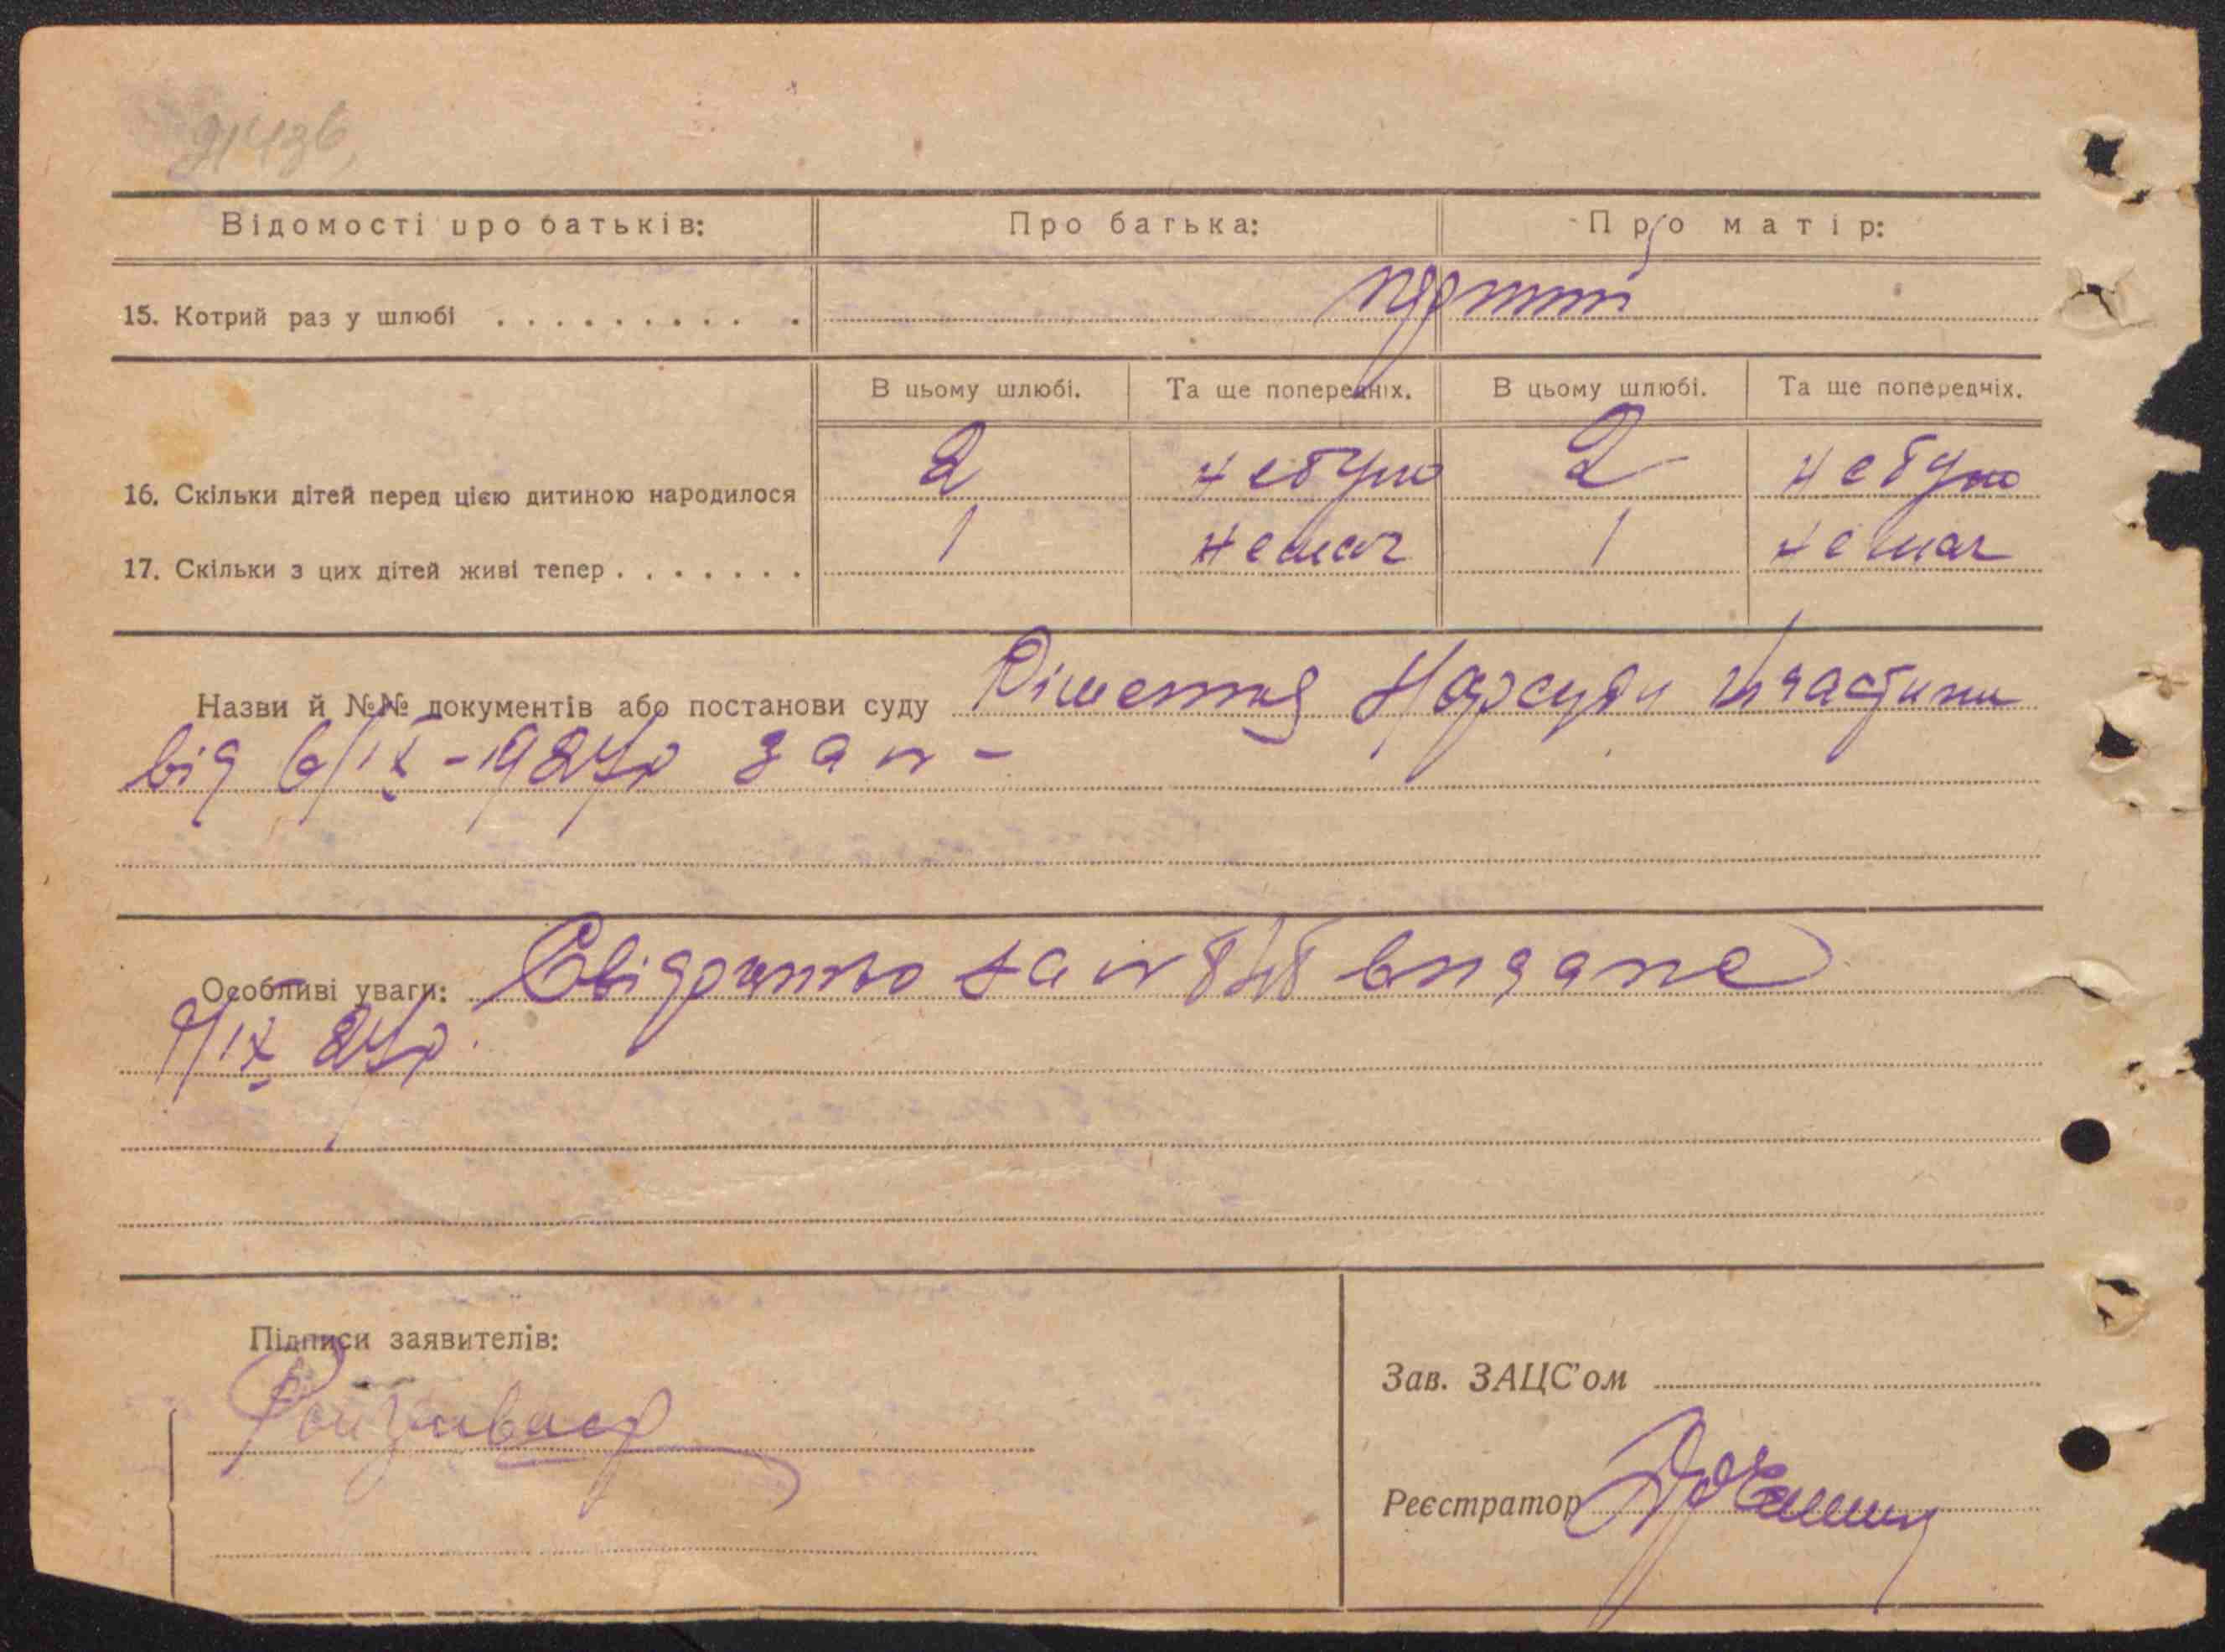 Відомості про батьків: Про батька: Про матір:
15. Котрий раз у шлюбі . . . . . . . . . . .
В цьому шлюбі. Та ще попередніх. В цьому шлюбі. Та ще попередніх.
16. Скільки дітей перед цією дитиною народилося 2 не було 2 не було
17. Скільки з цих дітей живі тепер . . . . . . . 1 немає 1 немає
Назви й №№ документів або постанови суду Рішення Нарсуду частини
від 6/IX-1927р за № -
Особливі уваги: Свідоцтво за № 848 видане
9/IX 27р.
Підписи заявителів:
Зав. ЗАЦС'ом
Реєстратор